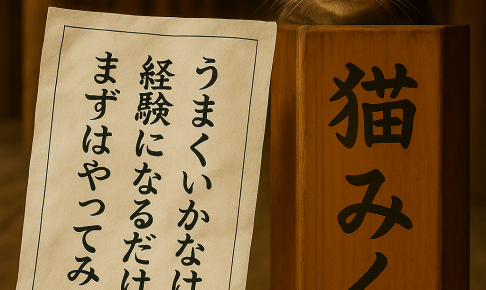 うまくいかなけ
経験になるだけ
まずはやってみ
猫みく